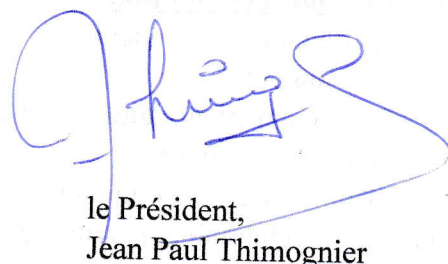 le Président,
Jean Paul Thimognier